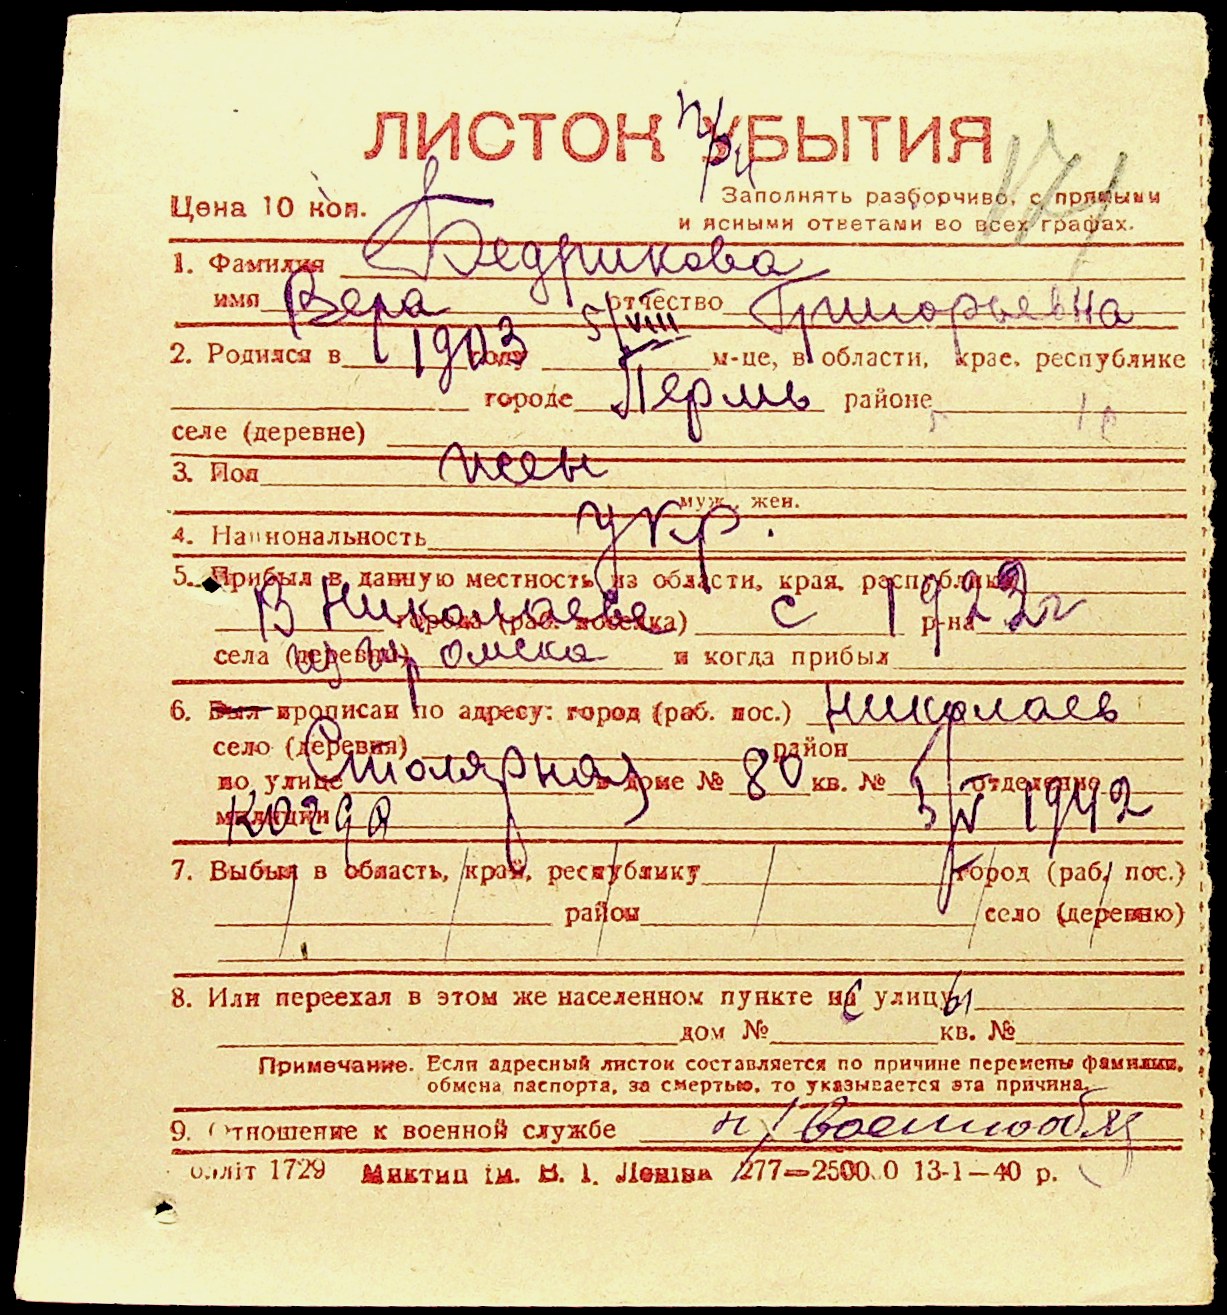 ЛИСТОК УБЫТИЯ
при
Цена 10 коп.
Заполнять разборчиво, с прямыми
и ясными ответами во всех графах.
1. Фамилия Бедрикова
имя Вера отчество Григорьевна
2. Родился в 1903 году 5/VIII м-це, в области, крае, республике
городе Пермь районе
селе (деревне)
3. Пол жен
муж., жен.
4. Национальность укр.
5. Прибыл в данную местность из области, края, республики
В Николаеве с 1923 г
города (раб. поселка) р-на
из гор омска
села (деревни) и когда прибыл
6. Был прописан по адресу: город (раб. пос.) Николаев
село (деревня) район
по улице Столярная в доме № 80 кв. № отделение
милиции когда 5/IV 1942
7. Выбыл в область, край, республику город (раб. пос.)
район село (деревню)
8. Или переехал в этом же населенном пункте на улицу
с ы
дом № кв. №
Примечание. Если адресный листок составляется по причине перемены фамилии,
обмена паспорта, за смертью, то указывается эта причина.
9. Отношение к военной службе н/военнообяз
1729 Миктип ім. В. І. Леніна 277—2500.0 13-1—40 р.